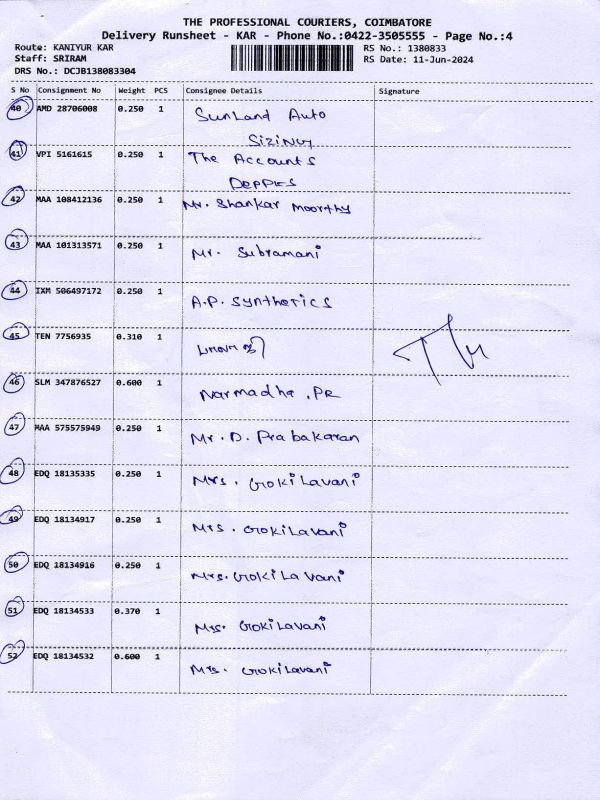 THE PROFESSIONAL COURIERS, COIMBATORE
Delivery Runsheet - KAR - Phone No.:0422-3505555 - Page No.:4
Route: KANIYUR KAR RS No.: 1380833
Staff: SRIRAM RS Date: 11-Jun-2024
DRS No.: DCJB138083304
S No Consignment No Weight PCS Consignee Details Signature
40 AMD 28706008 0.250 1 Sunland Auto
Sizing
41 VPI 5161615 0.250 1 The Accounts
42 MAA 108412136 0.250 1 Mr. Shankar Moorthy
43 MAA 101313571 0.250 1 Mr. Subramani
44 IXM 506497172 0.250 1 A.P. Synthetics
45 TEN 7756935 0.310 1
46 SLM 347876527 0.600 1 Narmadha .PR
47 MAA 575575949 0.250 1 Mr. D. Prabakaran
48 EDQ 18135335 0.250 1 Mrs. Gokilavani
49 EDQ 18134917 0.250 1 Mrs. Gokilavani
50 EDQ 18134916 0.250 1 Mrs. Gokilavani
51 EDQ 18134533 0.370 1 Mrs. Gokilavani
52 EDQ 18134532 0.600 1 Mrs. Gokilavani